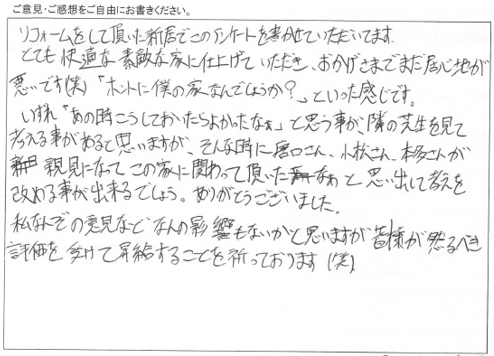 ご意見・ご感想をご自由にお書きください。
リフォームをして頂いた新居でこのアンケートを書かせていただいてます。
とても快適な素敵な家に仕上げていただき、おかげさまでまだ居心地が
悪いです(笑)「ホントに僕の家なんでしょうか?」といった感じです。
いずれ「あの時こうしておいたらよかったなぁ」と思う事が、隣の芝生を見て
考える事があると思いますが、そんな時に唐口さん、小松さん、本多さんが
親見になって この家に関わって頂いたなぁと思い出して考えを
改める事が出来るでしょう。ありがとうございました。
私なんぞの意見など なんの影響もないかと思いますが皆様が然るべき
評価を受けて昇給することを祈っております(笑)